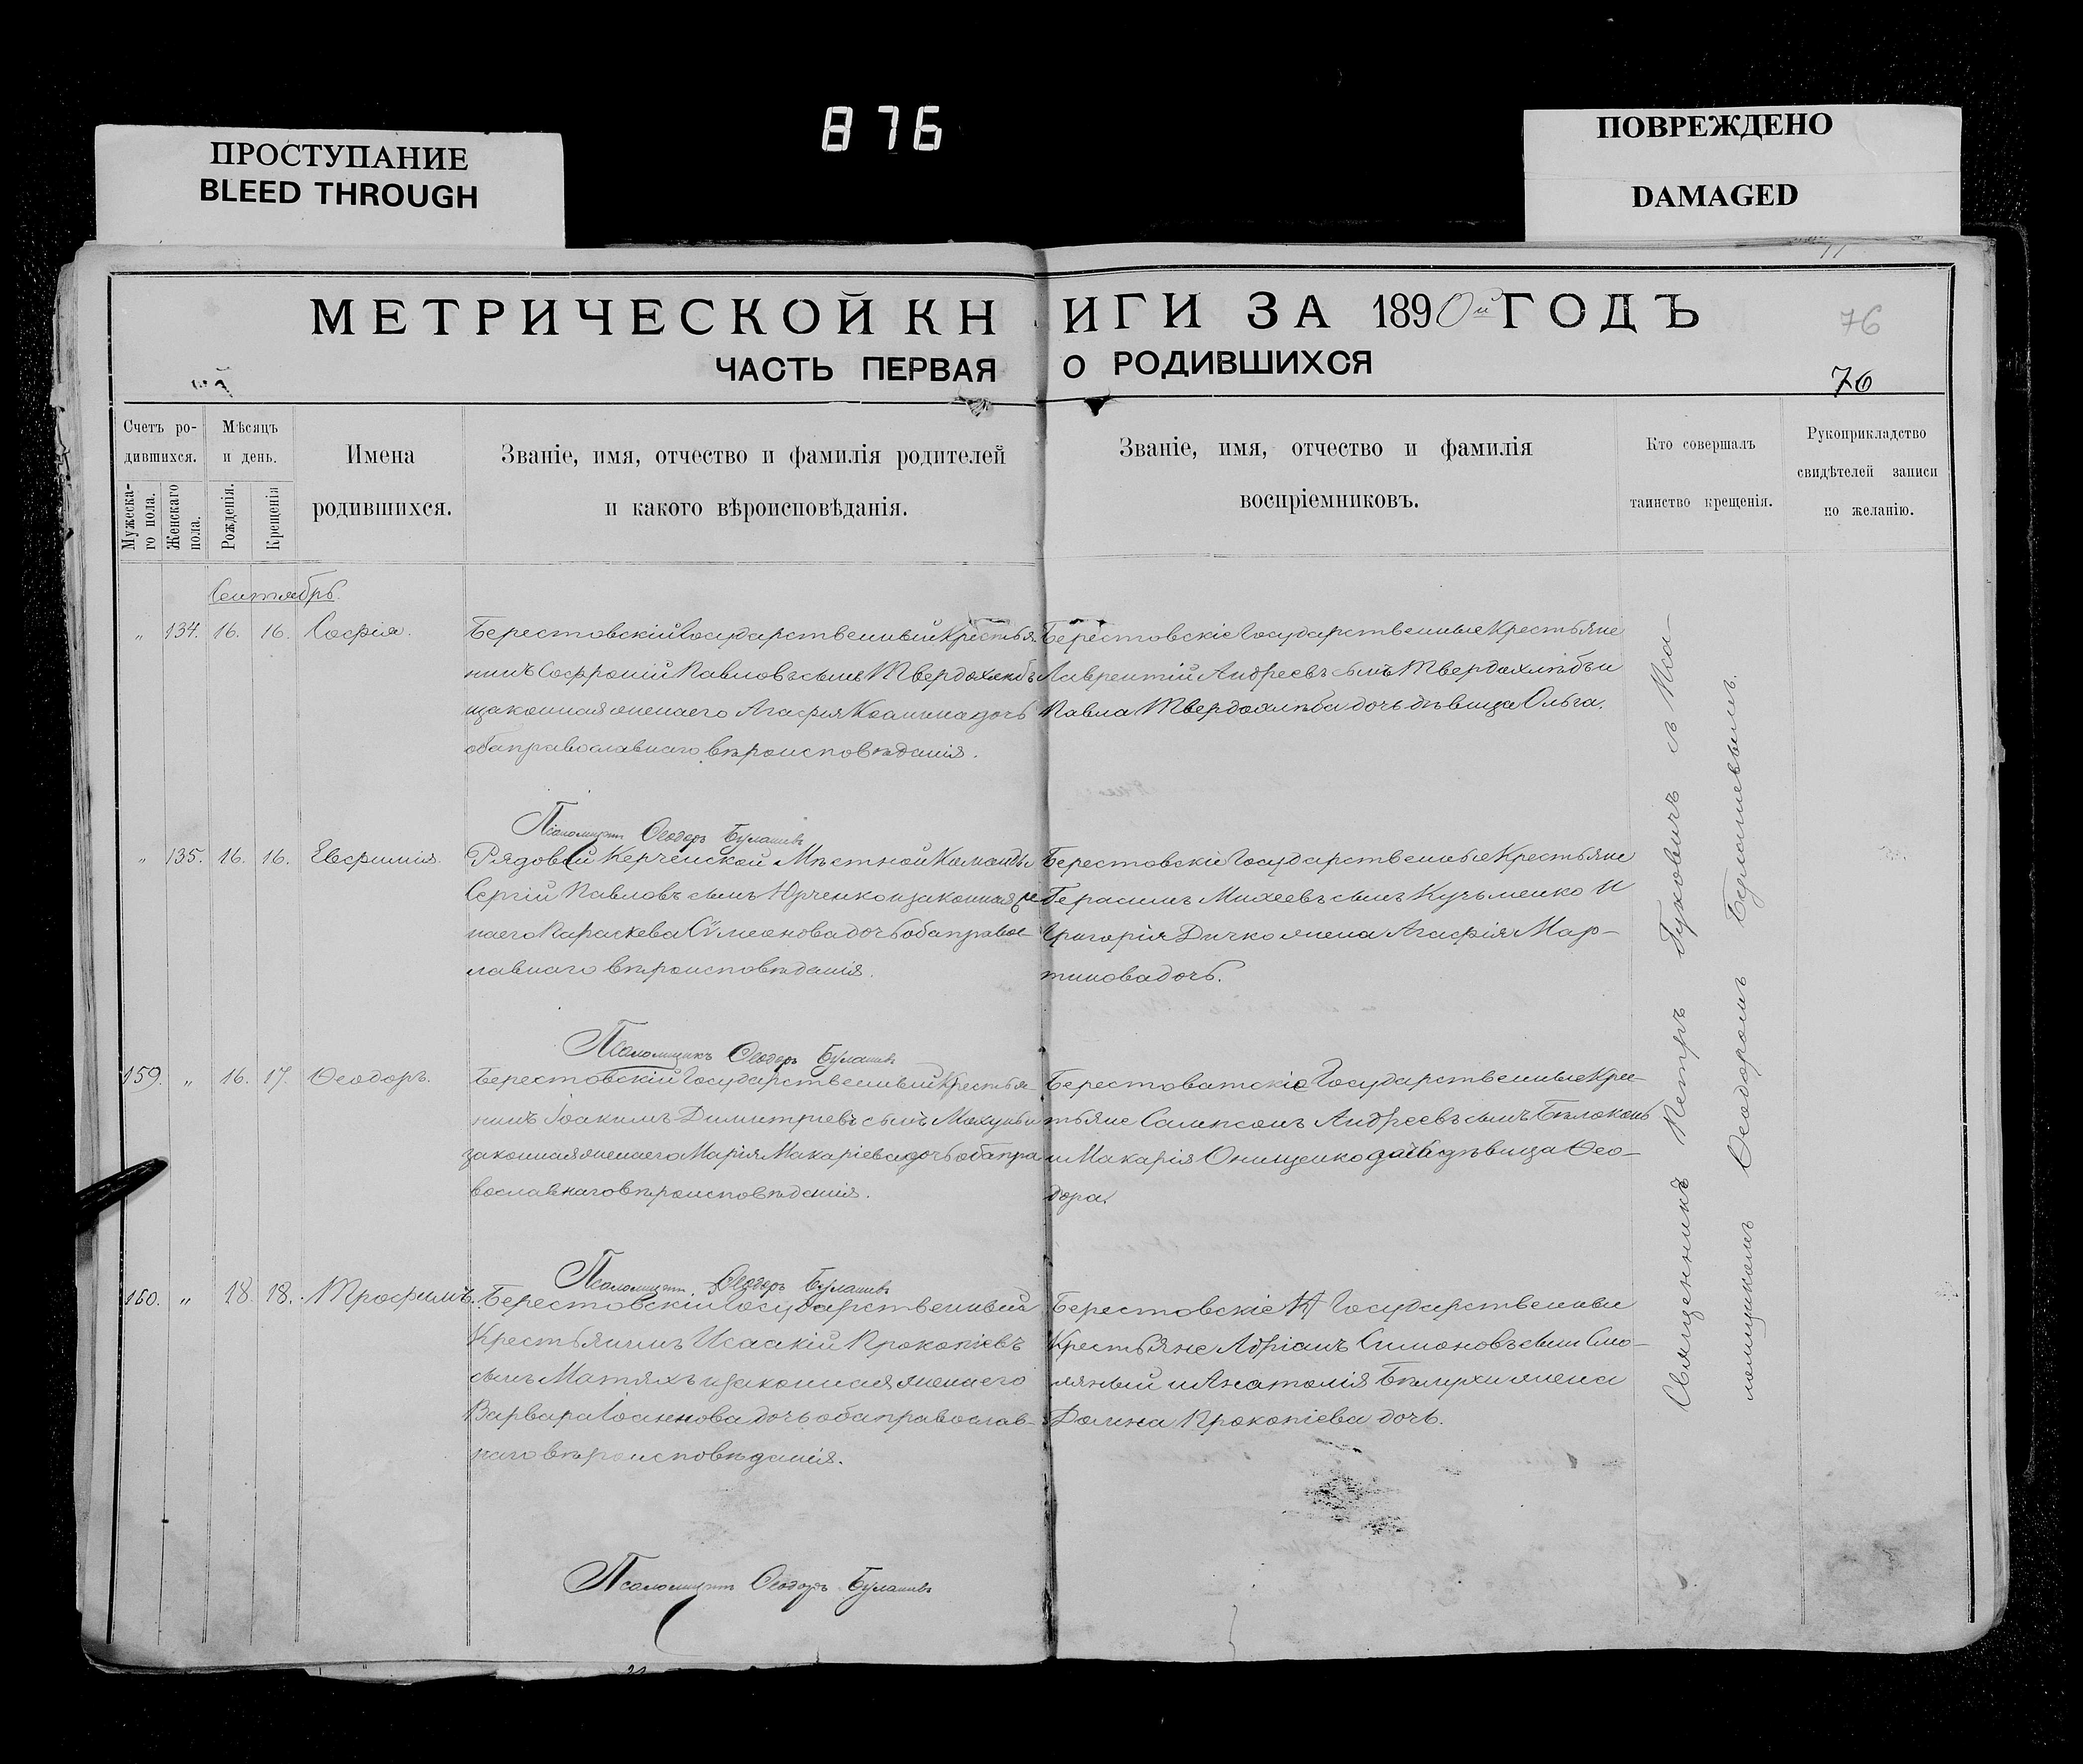 876
ПРОСТУПАНИЕ
BLEED THROUGH
ПОВРЕЖДЕНО
DAMAGED
МЕТРИЧЕСКОЙ КНИГИ ЗА 1890й ГОДЪ
76
ЧАСТЬ ПЕРВАЯ О РОДИВШИХСЯ
76
Счетъ родившихся.
Мужеска-
го пола.
Женскаго
пола.
Мѣсяцъ
и день.
Рожденія.
Крещенія
Имена
родившихся.
Званіе, имя, отчество и фамилія родителей
и какого вѣроисповѣданія.
Званіе, имя, отчество и фамилія
воспріемниковъ.
Кто совершалъ
таинство крещенія.
Рукоприкладство
свидѣтелей записи
по желанію.
Сентябрь.
„ 134. 16. 16. Софія.
Берестовскій Государственный Крестья
нинъ Софроній Павловъ сынъ Твердохлѣбъ
и законная жена его Агафія дочь
оба православнаго вѣроисповѣданія.
Берестовскіе Государственные Крестьяне
Лаврентій Андреевъ сынъ Твердохлѣбъ и
Павла Твердохлѣба дочь дѣвица Ольга.
Псаломщикъ Ѳеодоръ
„ 135. 16. 16. Евфимія.
Рядовой Керченской Мѣстной Команды
Сергій Павловъ сынъ Юрченко и законная же
на его Параскева Сѵмеонова дочь оба правос-
лавнаго вѣроисповѣданія.
Берестовскіе Государственные Крестьяне
Герасимъ Михеевъ сынъ Кузьменко и
Григорія Дичко жена Агафія Мар-
тинова дочь.
Псаломщикъ Ѳеодоръ
159. „ 16. 17. Ѳеодоръ.
Берестовскій Государственный Крестья-
нинъ Іоакимъ Димитріевъ сынъ и
законная жена его Марія Макаріева дочь оба пра
вославнаго вѣроисповѣданія.
Берестоватскіе Государственные Крес-
тьяне Сампсонъ Андреевъ сынъ Бѣлоконь
и Макарія Онищенко дочь дѣвица Ѳео-
дора.
Псаломщикъ Ѳеодоръ
160. „ 18. 18. Трофимъ.
Берестовскій Государственный
Крестьянинъ Исаакій Прокопіевъ
сынъ Матяхъ и законная жена его
Варвара Іоаннова дочь оба православ-
наго вѣроисповѣданія.
Берестовскіе Государственные
Крестьяне Адріанъ Симоновъ сынъ Смо-
ляный и Анатолія жена
Домна Прокопіева дочь.
Псаломщикъ Ѳеодоръ
Священникъ Петръ съ Пса-
ломщикомъ Ѳеодоромъ